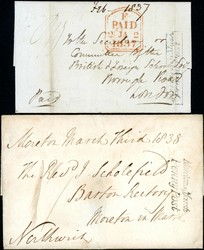 Feb 1837
F
PAID
2 JA 2
1837
To the Secretary or
Committee of the
British & Foreign School
Borough Road
London
Paid
Moreton March Third 1838
The Revd. J Scholefield
Barton Rectory
Moreton in Marsh
Northwich
Penny Post